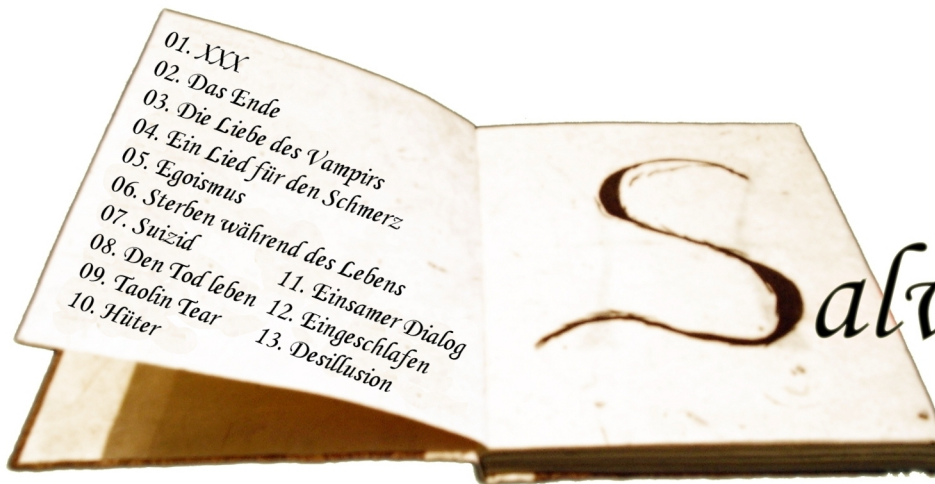 01. XXX
02. Das Ende
03. Die Liebe des Vampirs
04. Ein Lied für den Schmerz
05. Egoismus
06. Sterben während des Lebens
07. Suizid
08. Den Tod leben
09. Taolin Tear
10. Hüter
11. Einsamer Dialog
12. Eingeschlafen
13. Desillusion
Salv